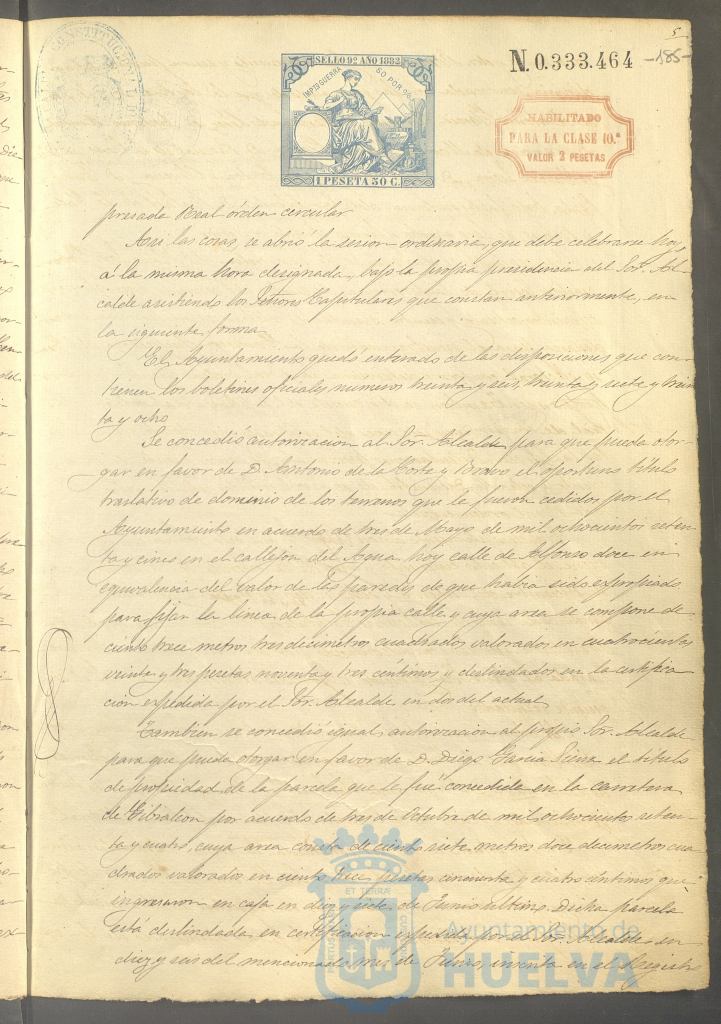 5
SELLO 9º AÑO 1882
N.0.333.464
-185-
IMPTO GUERRA 50 POR %
HABILITADO
PARA LA CLASE 10.ª
VALOR 2 PESETAS
1 PESETA 50 C.
presada Real órden circular
Asi las cosas, se abrió la sesion ordinaria, que debe celebrarse hoy
á la misma hora designada, bajo la propia presidencia del Sor. Al-
calde asistiendo los Señores Capitulares que constan anteriormente, en
la siguiente forma
El Ayuntamiento quedó enterado de las disposiciones que con-
tienen los boletines oficiales números treinta y seis, treinta y siete y trein
ta y ocho
Se concedió autorizacion al Sor. Alcalde para que pueda otor-
gar en favor de D. Antonio de la Corte y Bravo el oportuno título
traslativo de dominio de los terrenos que le fueron cedidos por el
Ayuntamiento en acuerdo de tres de Mayo de mil ochocientos seten-
ta y cinco en el callejon del Agua hoy calle de Alfonso doce en
equivalencia del valor de las paredes de que habia sido expropiado
para fijar la línea de la propia calle y cuya area se compone de
ciento trece metros tres decimetros cuadrados valorados en cuatrocientas
veinte y tres pesetas noventa y tres céntimos y deslindados en la certifica
cion expedida por el Sor. Alcalde en dos del actual
Tambien se concedió igual autorizacion al propio Sor. Alcalde
para que pueda otorgar en favor de D. Diego Garcia el título
de propiedad de la parcela que le fué concedida en la carretera
de Gibraleon por acuerdo de tres de Octubre de mil ochocientos seten-
ta y cuatro, cuya area consta de ciento siete metros doce decimetros cua
drados valorados en ciento trece pesetas cincuenta y cuatro céntimos que
ingresaron en caja en diez y siete de Junio último. Dicha parcela
está deslindada en certificacion expedida por el Sor. Alcalde en
diez y seis del mencionado mes de inserta en el Registr
ET TERRÆ
Ayuntamiento de
HUELVA